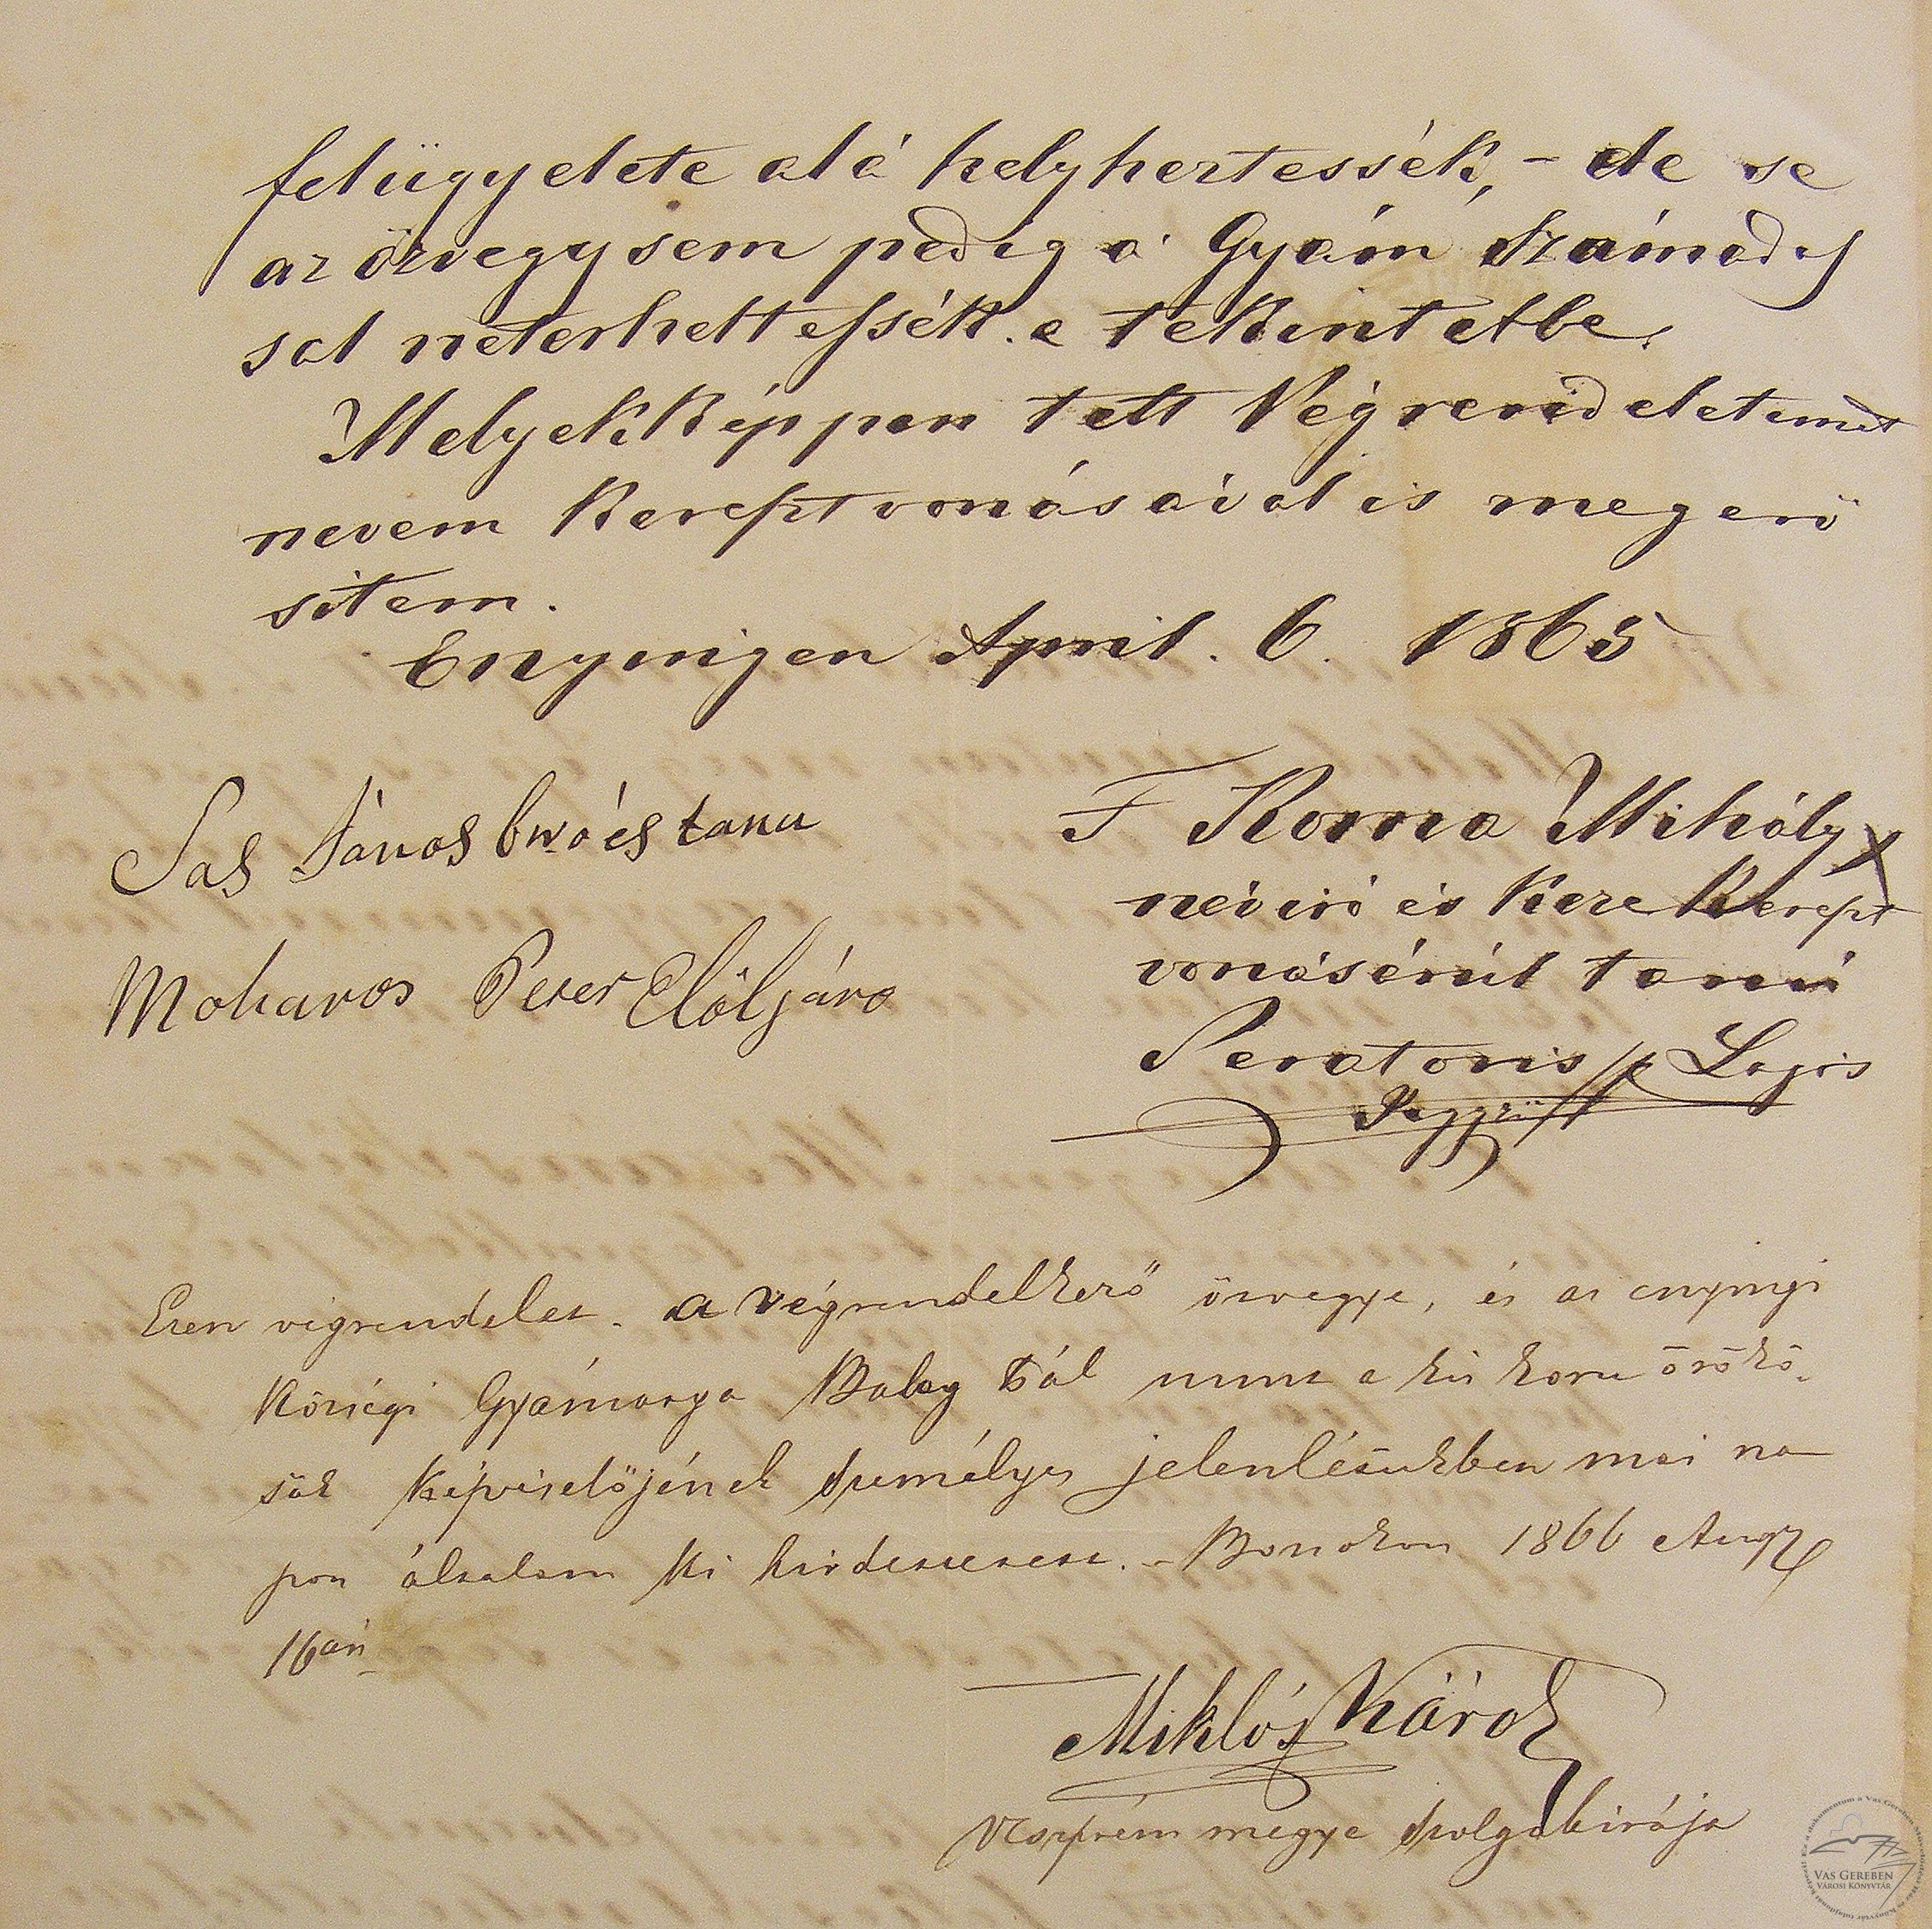 felügyelete alá helyheztessék, – de se
az özvegy sem pedig a' Gyám Számadás
sal neterheltessék. e tekintetbe.
Melyekképpen tett Végrendeletemet
nevem Kereszt vonásával is megerő
sitem.
Enyingen April. 6. 1865
Sas János biró és tanu
Moharos Peter Elöljáro
F Koma Mihály x
név iró és Keze Kereszt
vonásánál tanú
Senatoris Lajos
Jeggző
Ezen végrendelet a végrendelkező özvegye, és az enyingi
Községi Gyámatya Balog Pál mint a kis koru örökö-
sök képviselőjének személyes jelenlésükben mai na-
pon általam ki hirdettetett. – Bozsokon 1866 Aug
16án
Miklós Károly
Veszprém megye szolgabirája
VAS GEREBEN
VÁROSI KÖNYVTÁR